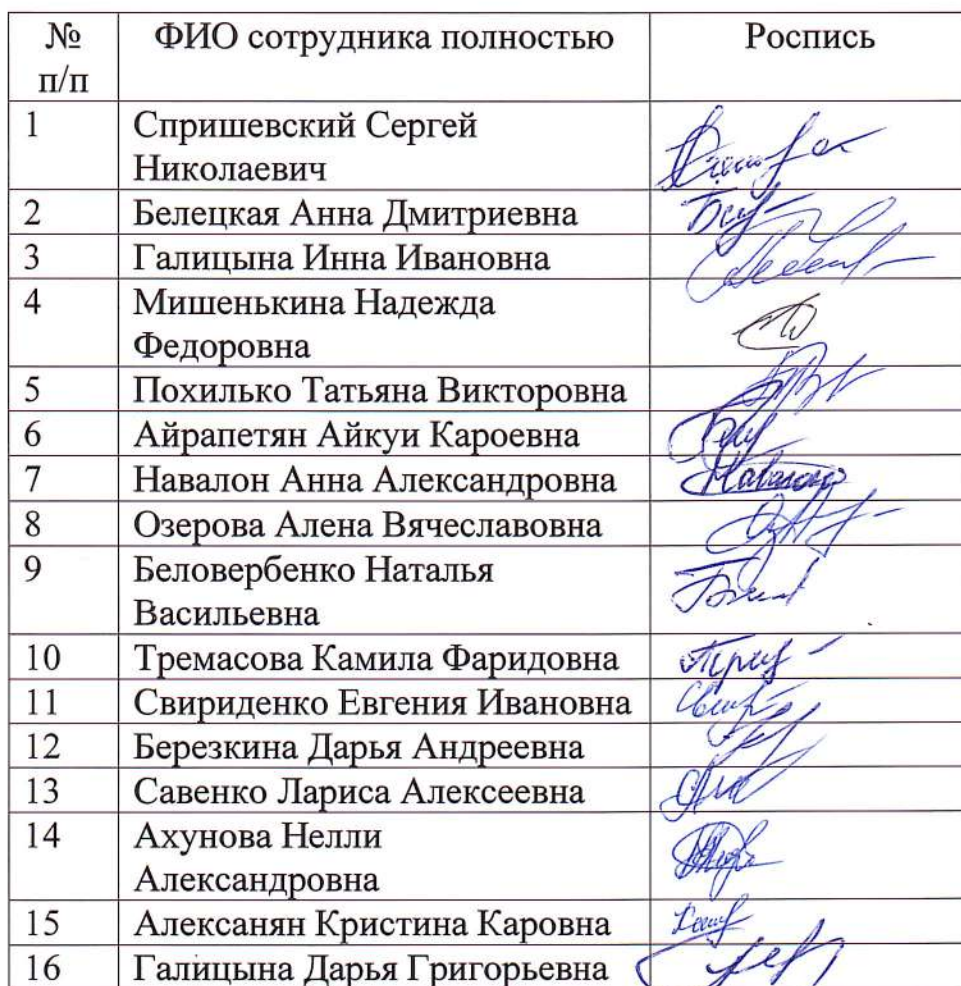 № ФИО сотрудника полностью Роспись
п/п
1 Спришевский Сергей
Николаевич
2 Белецкая Анна Дмитриевна
3 Галицына Инна Ивановна
4 Мишенькина Надежда
Федоровна
5 Похилько Татьяна Викторовна
6 Айрапетян Айкуи Кароевна
7 Навалон Анна Александровна
8 Озерова Алена Вячеславовна
9 Беловербенко Наталья
Васильевна
10 Тремасова Камила Фаридовна
11 Свириденко Евгения Ивановна
12 Березкина Дарья Андреевна
13 Савенко Лариса Алексеевна
14 Ахунова Нелли
Александровна
15 Алексанян Кристина Каровна
16 Галицына Дарья Григорьевна